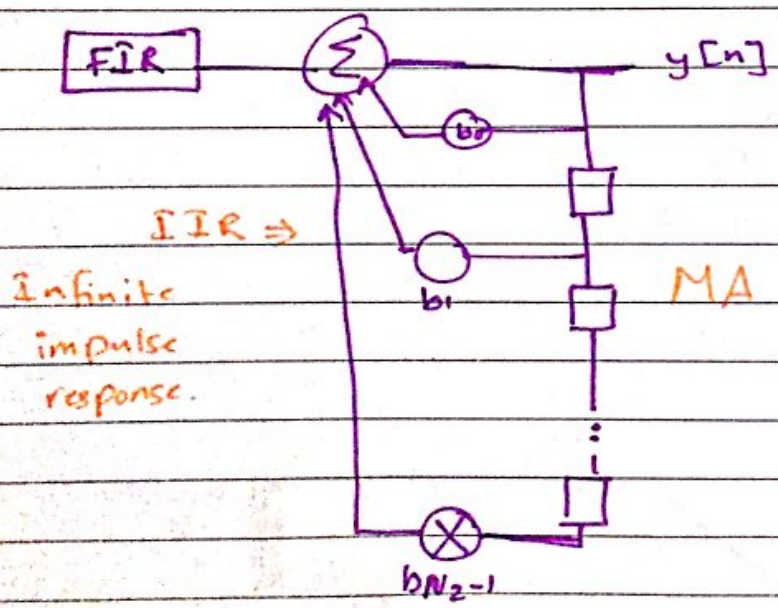 FIR
Σ
y[n]
b0
IIR ⇒
Infinite
impulse
response.
b1
MA
bN2-1